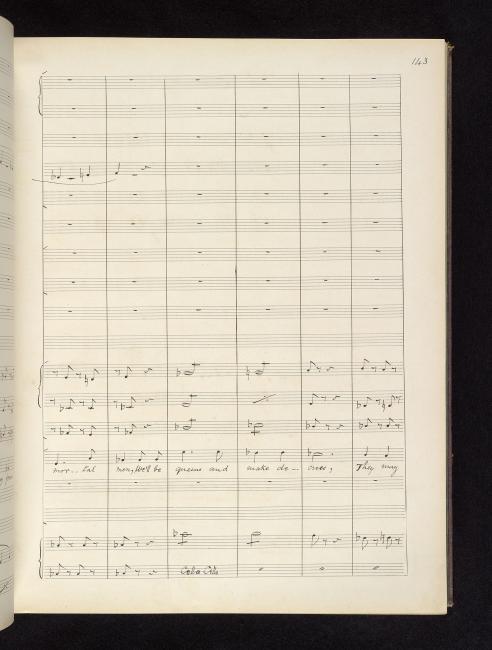 143
mor... tal men; We'll be queens and make de... crees; They may
Col a Cello